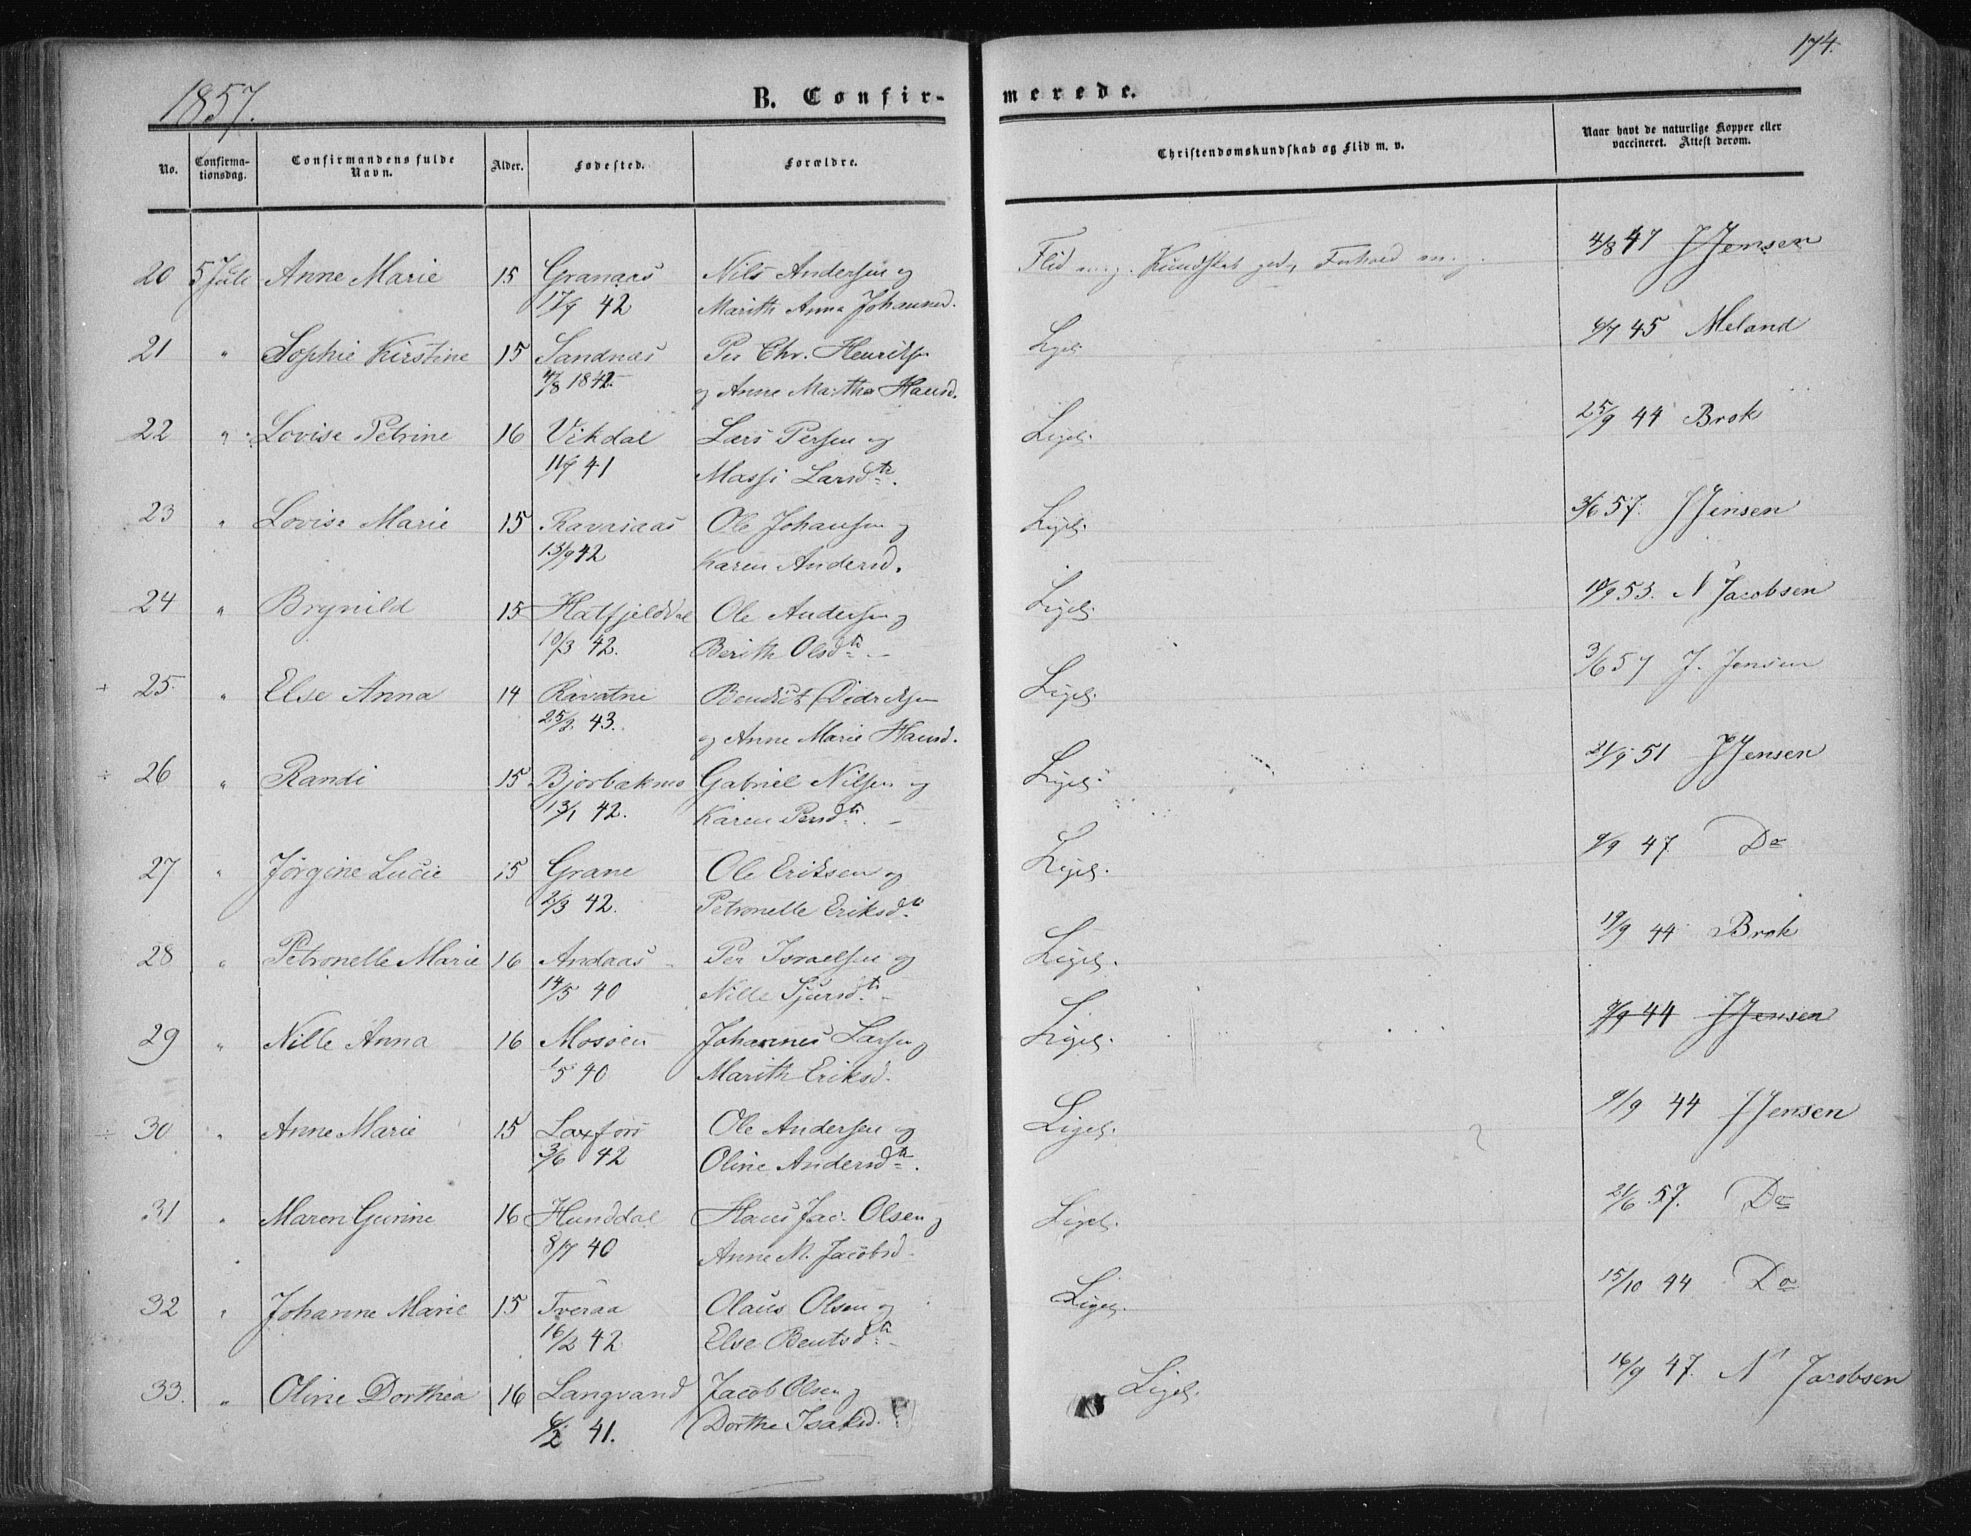 174.
1857.
B. Confir- merede.
No. Confirma-tionsdag. Confirmandens fulde Navn. Alder. Fødested. Forældre. Christendomskundskab og Flid m. v. Naar havt de naturlige Kopper eller vaccineret. Attest derom.
20 5 Juli Anne Marie 15 Granaas Nils Andersen og Flid m. g. Kundskab god, Forhold m. g. 4/8 47 J Jensen
17/9 42 Marith Anna Johannesd.
21 " Sophie Kirstine 15 Sandnæs Per Chr. Henriks. Ligel. 6/7 45 Meland
4/8 1842 og Anne Martha Hansd.
22 " Lovise Petrine 16 Vikdal Lars Persen og Ligel. 25/9 44 Brok
11/7 41 Massi Larsdtr.
23 " Lovise Marie 15 Ravasaas Ole Johansen og Ligel. 3/6 57. J Jensen
15/9 42 Karen Andersd.
24 " Brynild 15 Hatfjelddal Ole Andersen og Ligel. 10/9 53. N Jacobsen
10/3 42. Berith Olsdtr.
25. " Else Anna 14 Ravatne Bendict Didriksen Ligel. 3/6 57 J. Jensen
25/2. 43. og Anne Marie Hansd.
26 " Randi 15 Bjorbækmo Gabriel Nilsen og Ligel. 21/9 51 J Jensen
13/1 42. Karen Persdtr.
27 " Jørgine Lucie 15 Grane Ole Eriksen og Ligel. 9/9 47. Do
2/3 42. Petronelle Eriksdtr.
28 " Petronelle Marie 16 Andaas Per Israelsen og Ligel. 19/9 44 Brok
14/5 40 Nille Sjursdtr.
29 " Nille Anna 16 Mosøen Johannes Larsen og Ligel. 9/9 44 J Jensen
1/5 40 Marith Eriksd.
30 " Anne Marie 15 Laxfors Ole Andersen og Ligel. 9/9 44 J Jensen
3/6 42 Oline Andersdtr.
31 " Maren Gurine 16 Hunddal Hans Jac. Olsen og Ligel. 21/6 57. Do
8/7 40 Anne M. Jacobsd.
32 " Johanne Marie 15 Tveraa Olaus Olsen og Ligel. 15/10 44 Do
16/2 42 Else Bentsdtr.
33. " Oline Dorthea 16 Langvand Jacob Olsen og Ligel. 16/9 47. N Jacobsen
6/2 41. Dorthe Isaksd.